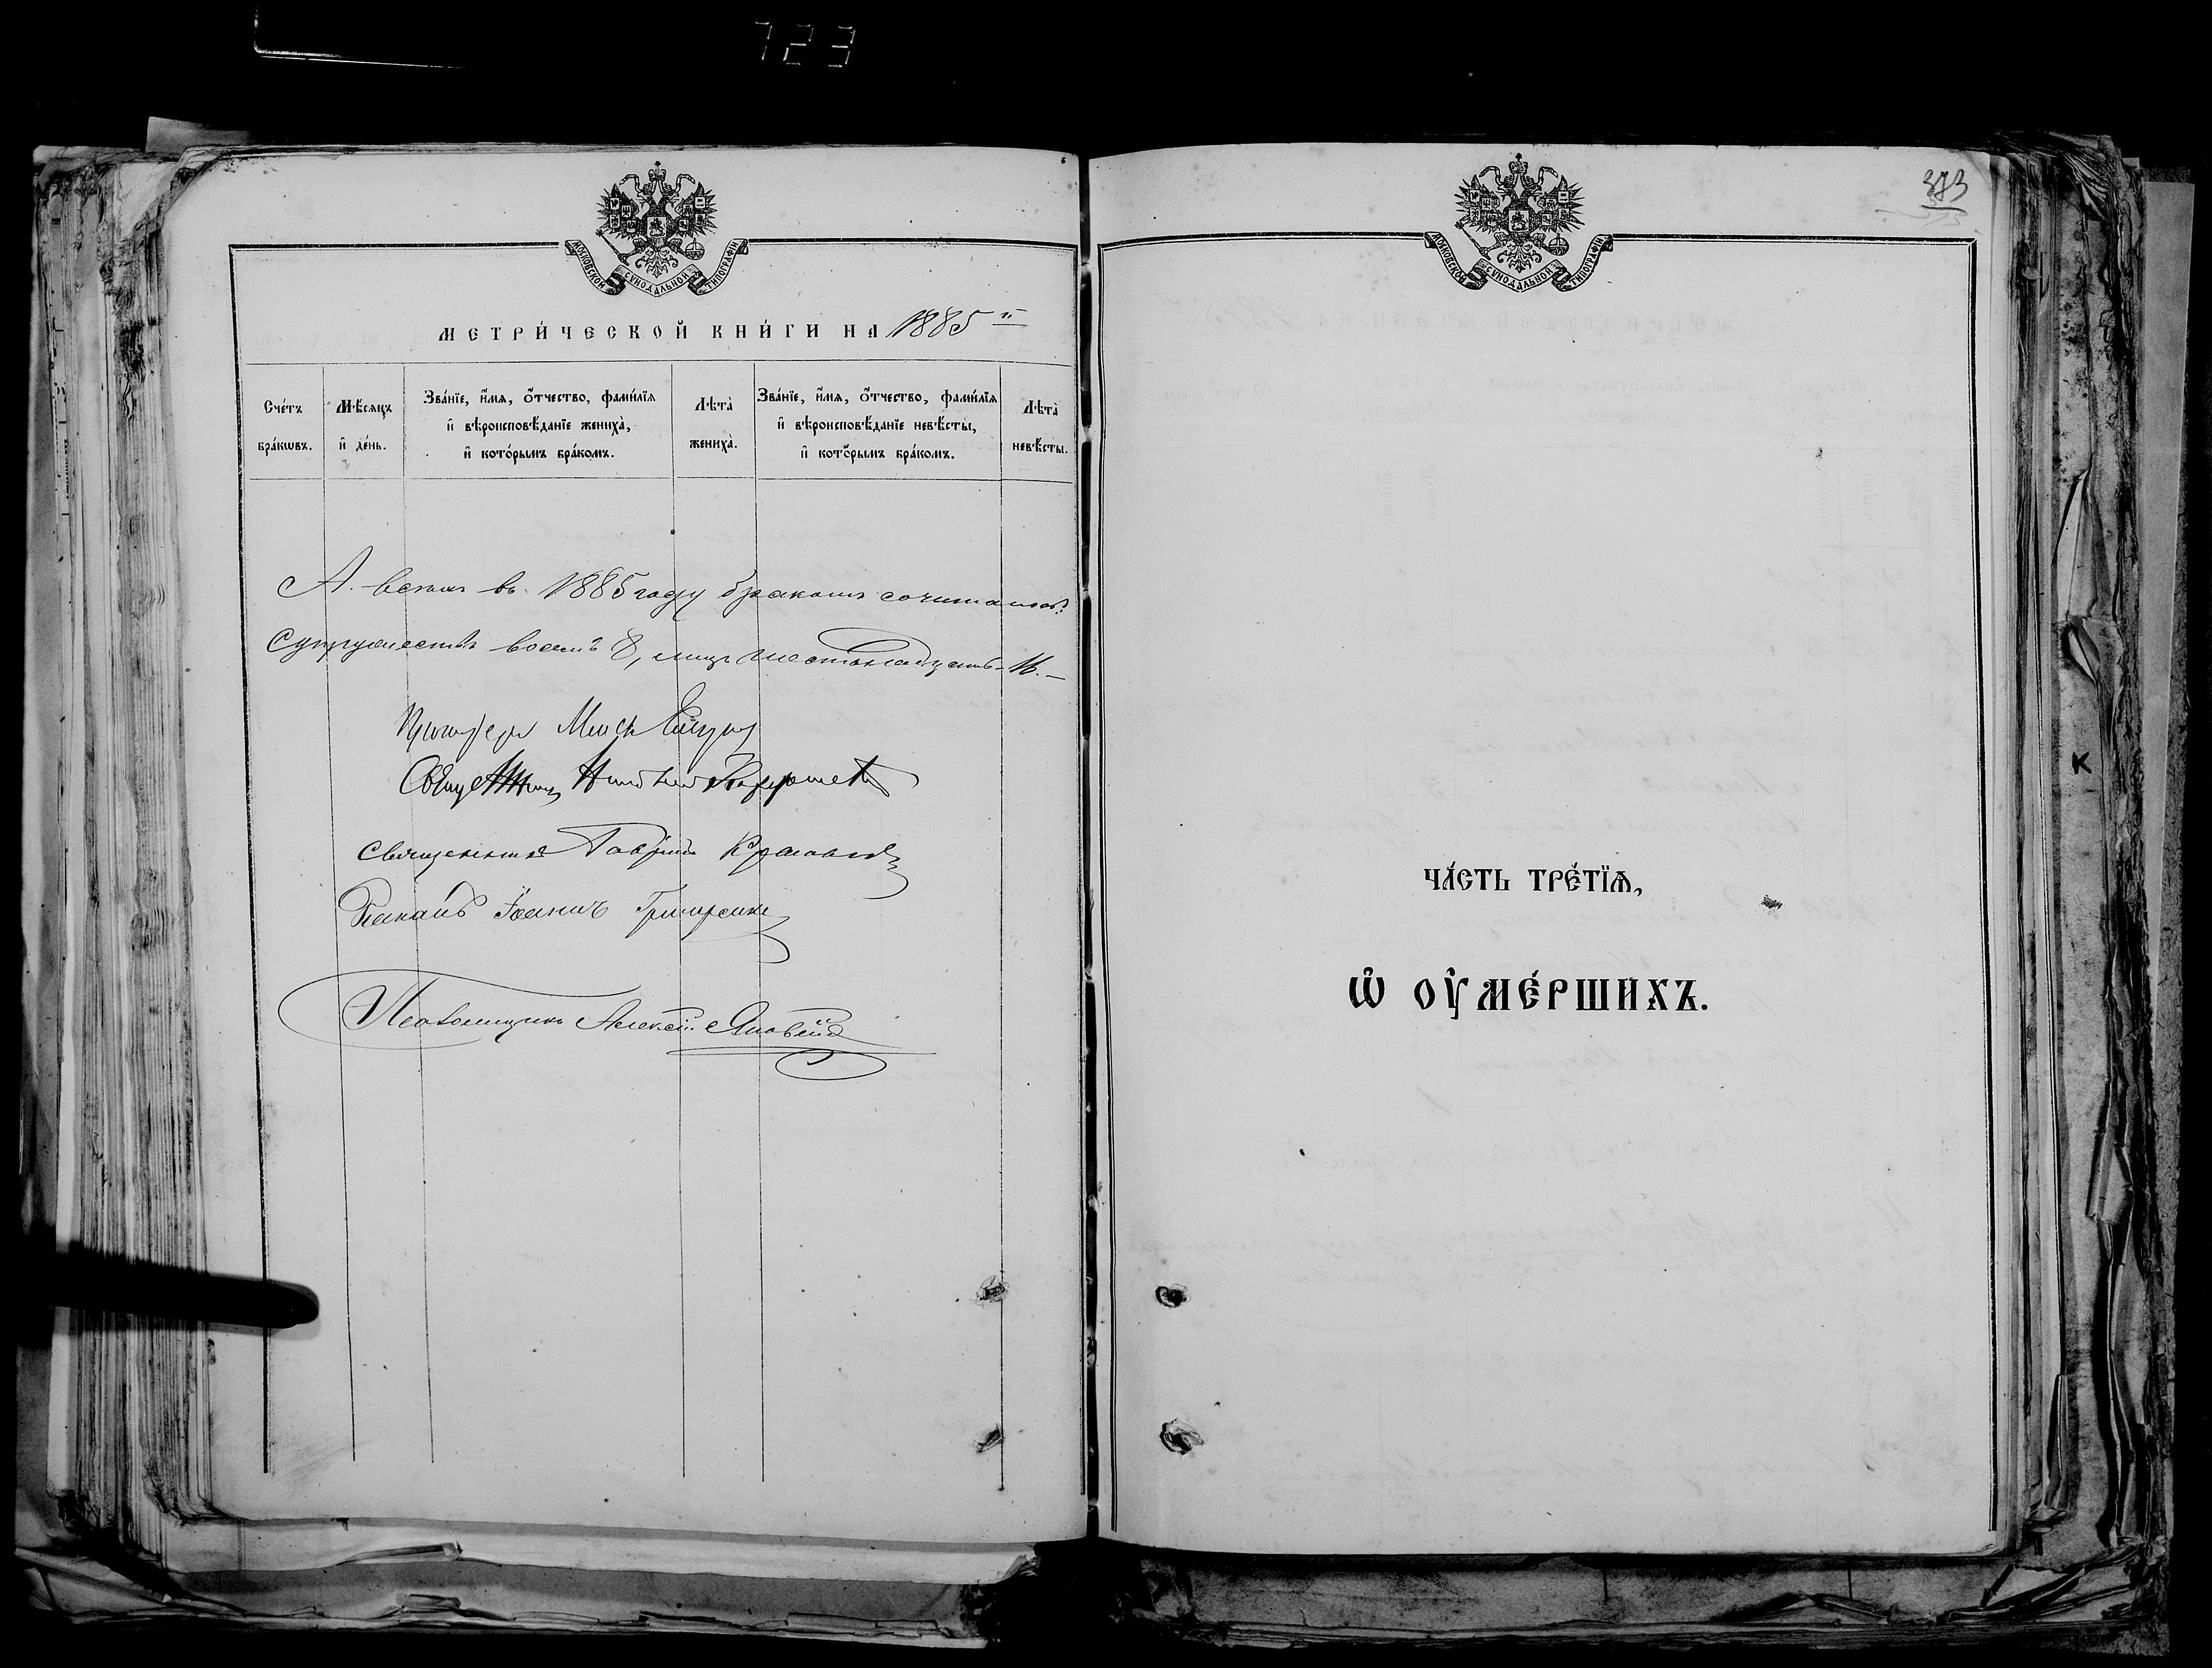 723
МОСКОВСКОЙ СѴНОДАЛЬНОЙ ТИПОГРАФІИ
МЕТРИ́ЧЕСКОЙ КНИ́ГИ НА 1885 й
Сче́тъ бра́кѡвъ.
Мѣ́сяцъ и҆ де́нь.
Зва́нїе, и҆́мѧ, ѻ҆́тчество, фами́лїѧ и҆ вѣроисповѣ́данїе жениха̀, и҆ кото́рымъ бра́комъ.
Лѣта̀ жениха̀.
Зва́нїе, и҆́мѧ, ѻ҆́тчество, фами́лїѧ и҆ вѣроисповѣ́данїе невѣ́сты, и҆ кото́рымъ бра́комъ.
Лѣта̀ невѣ́сты.
А всехъ въ 1885 году бракомъ сочитанныхъ
супружествъ восемь 8, лицъ шестьнадцать 16.
Протоиерей
Священникъ
Священникъ Гавріилъ
Іоаннъ Григоренко
Псаломщикъ Алексій
373
МОСКОВСКОЙ СѴНОДАЛЬНОЙ ТИПОГРАФІИ
ЧА́СТЬ ТРЕ́ТЇѦ,
Ѽ ОУ҆МЕ́РШИХЪ.
К